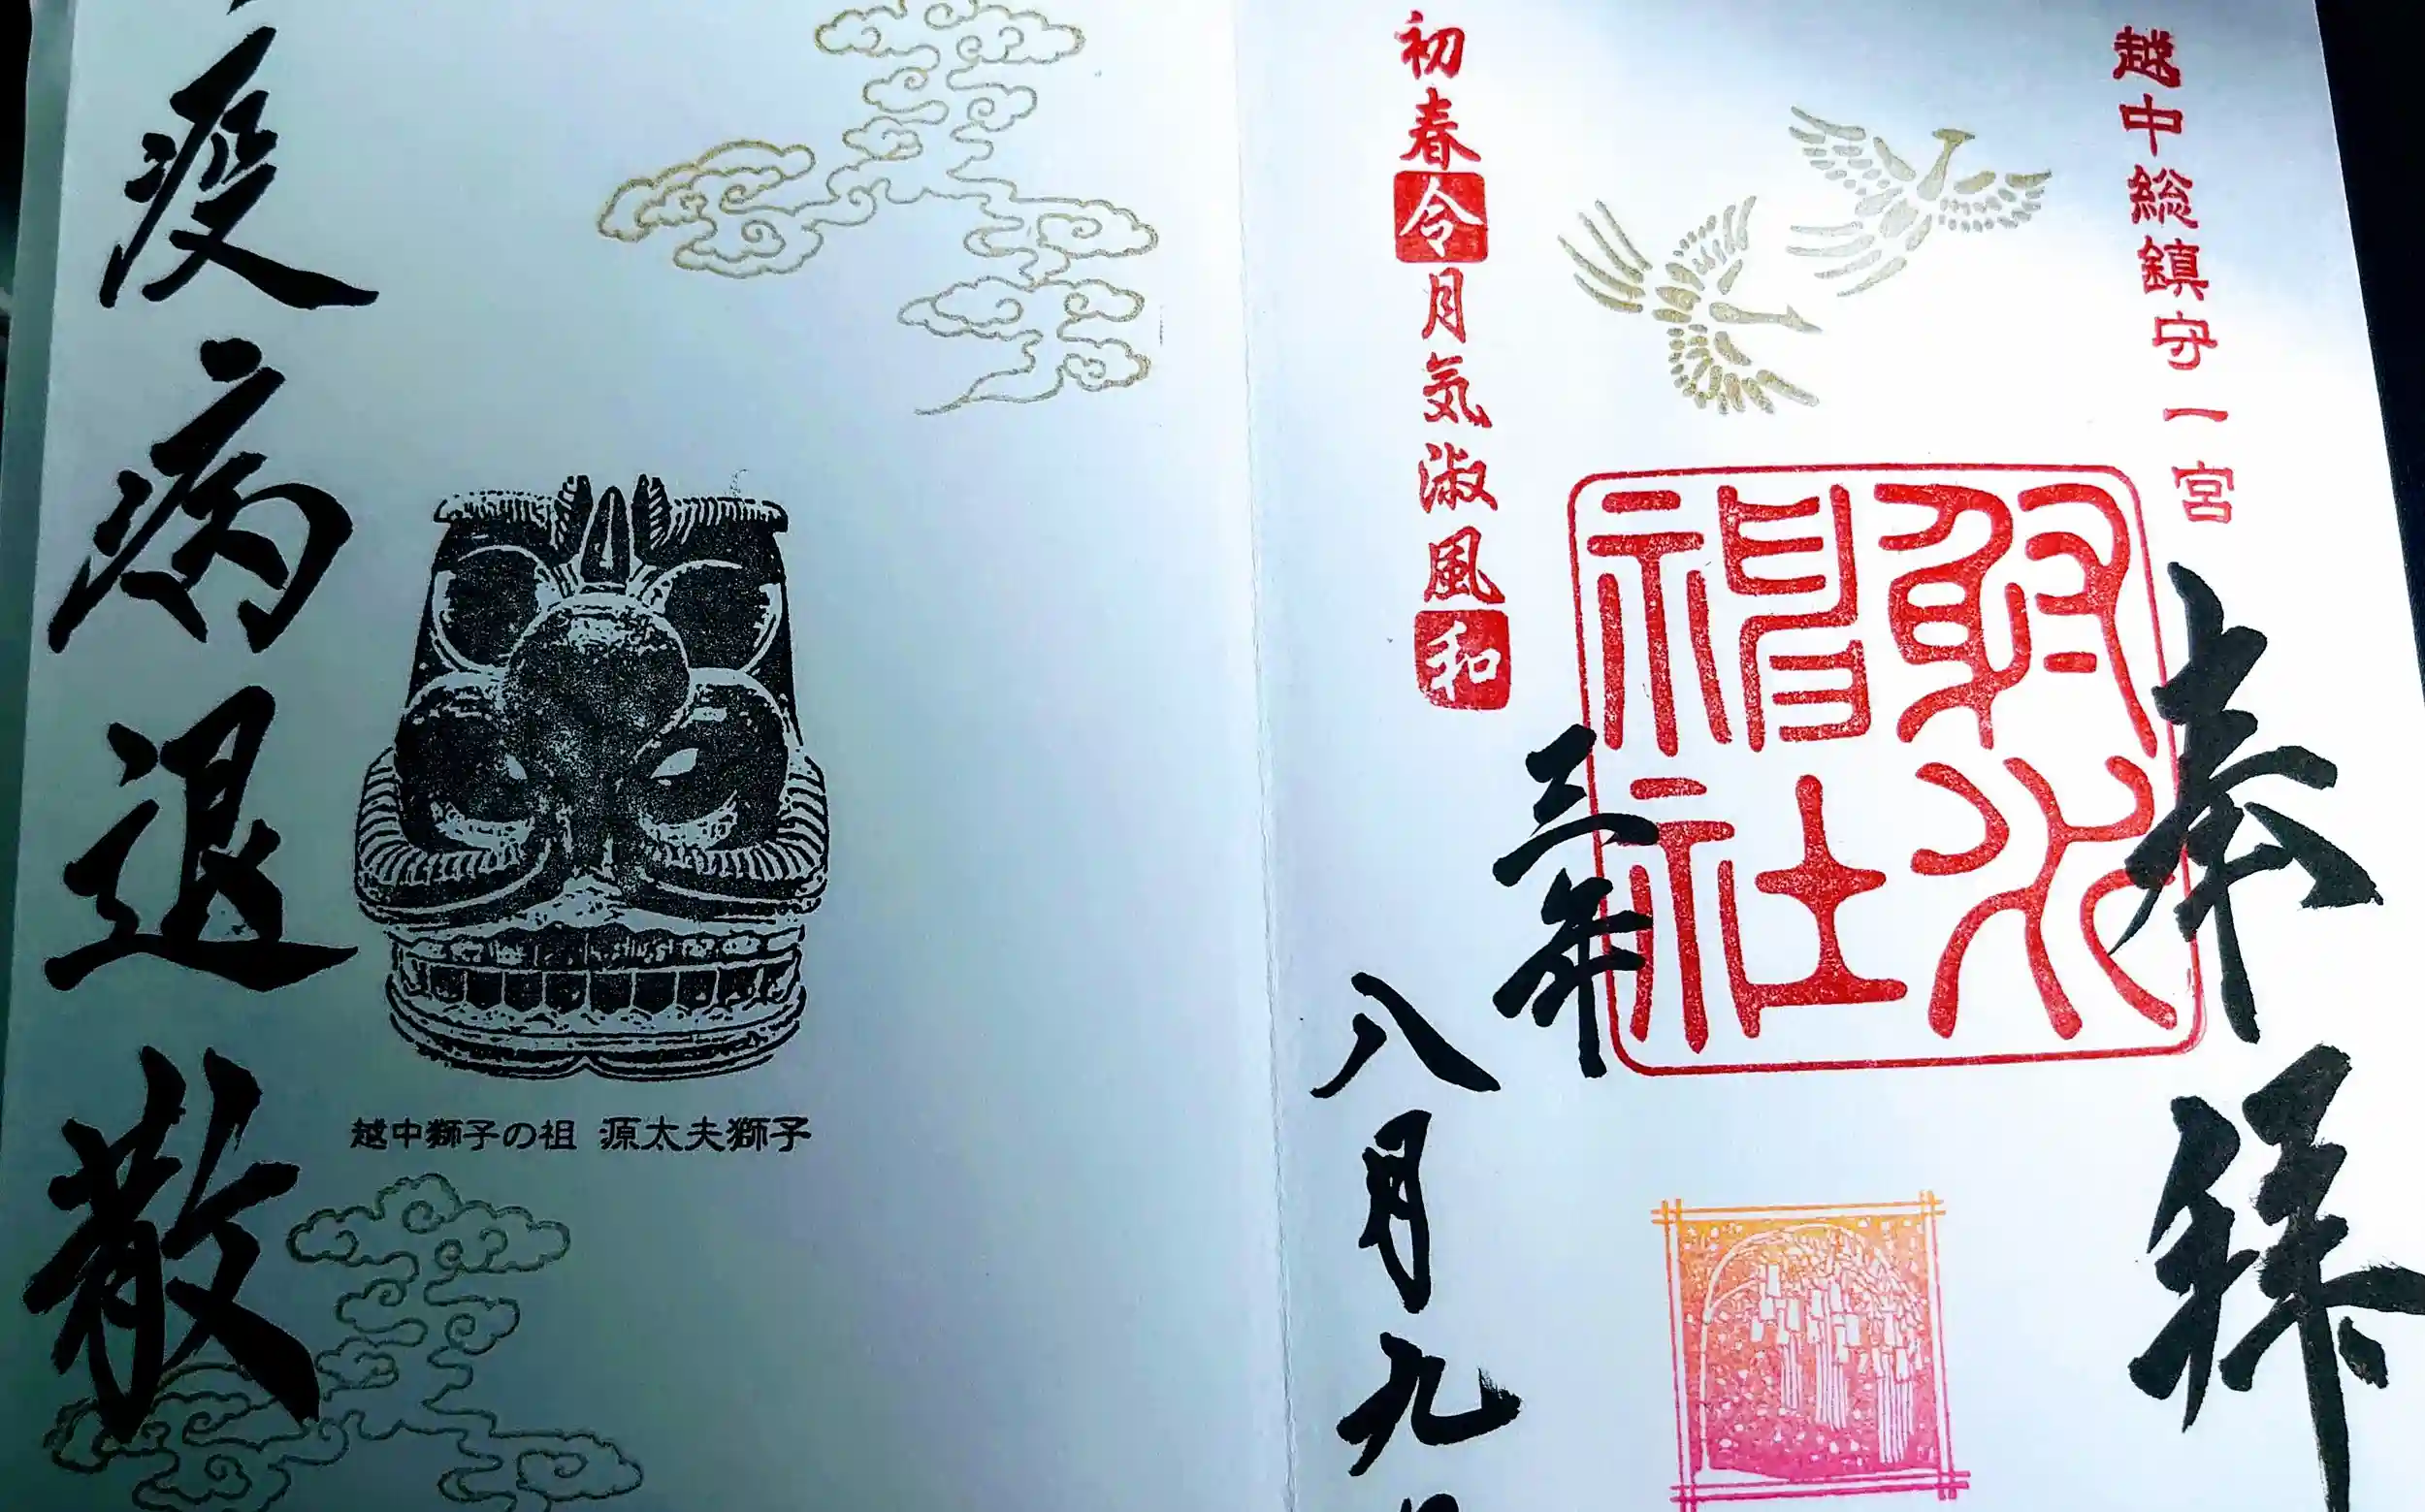 越中総鎮守一宮
奉拝
射水神社
初春令月気淑風和
三年
八月九
越中獅子の祖 源太夫獅子
疫病退散